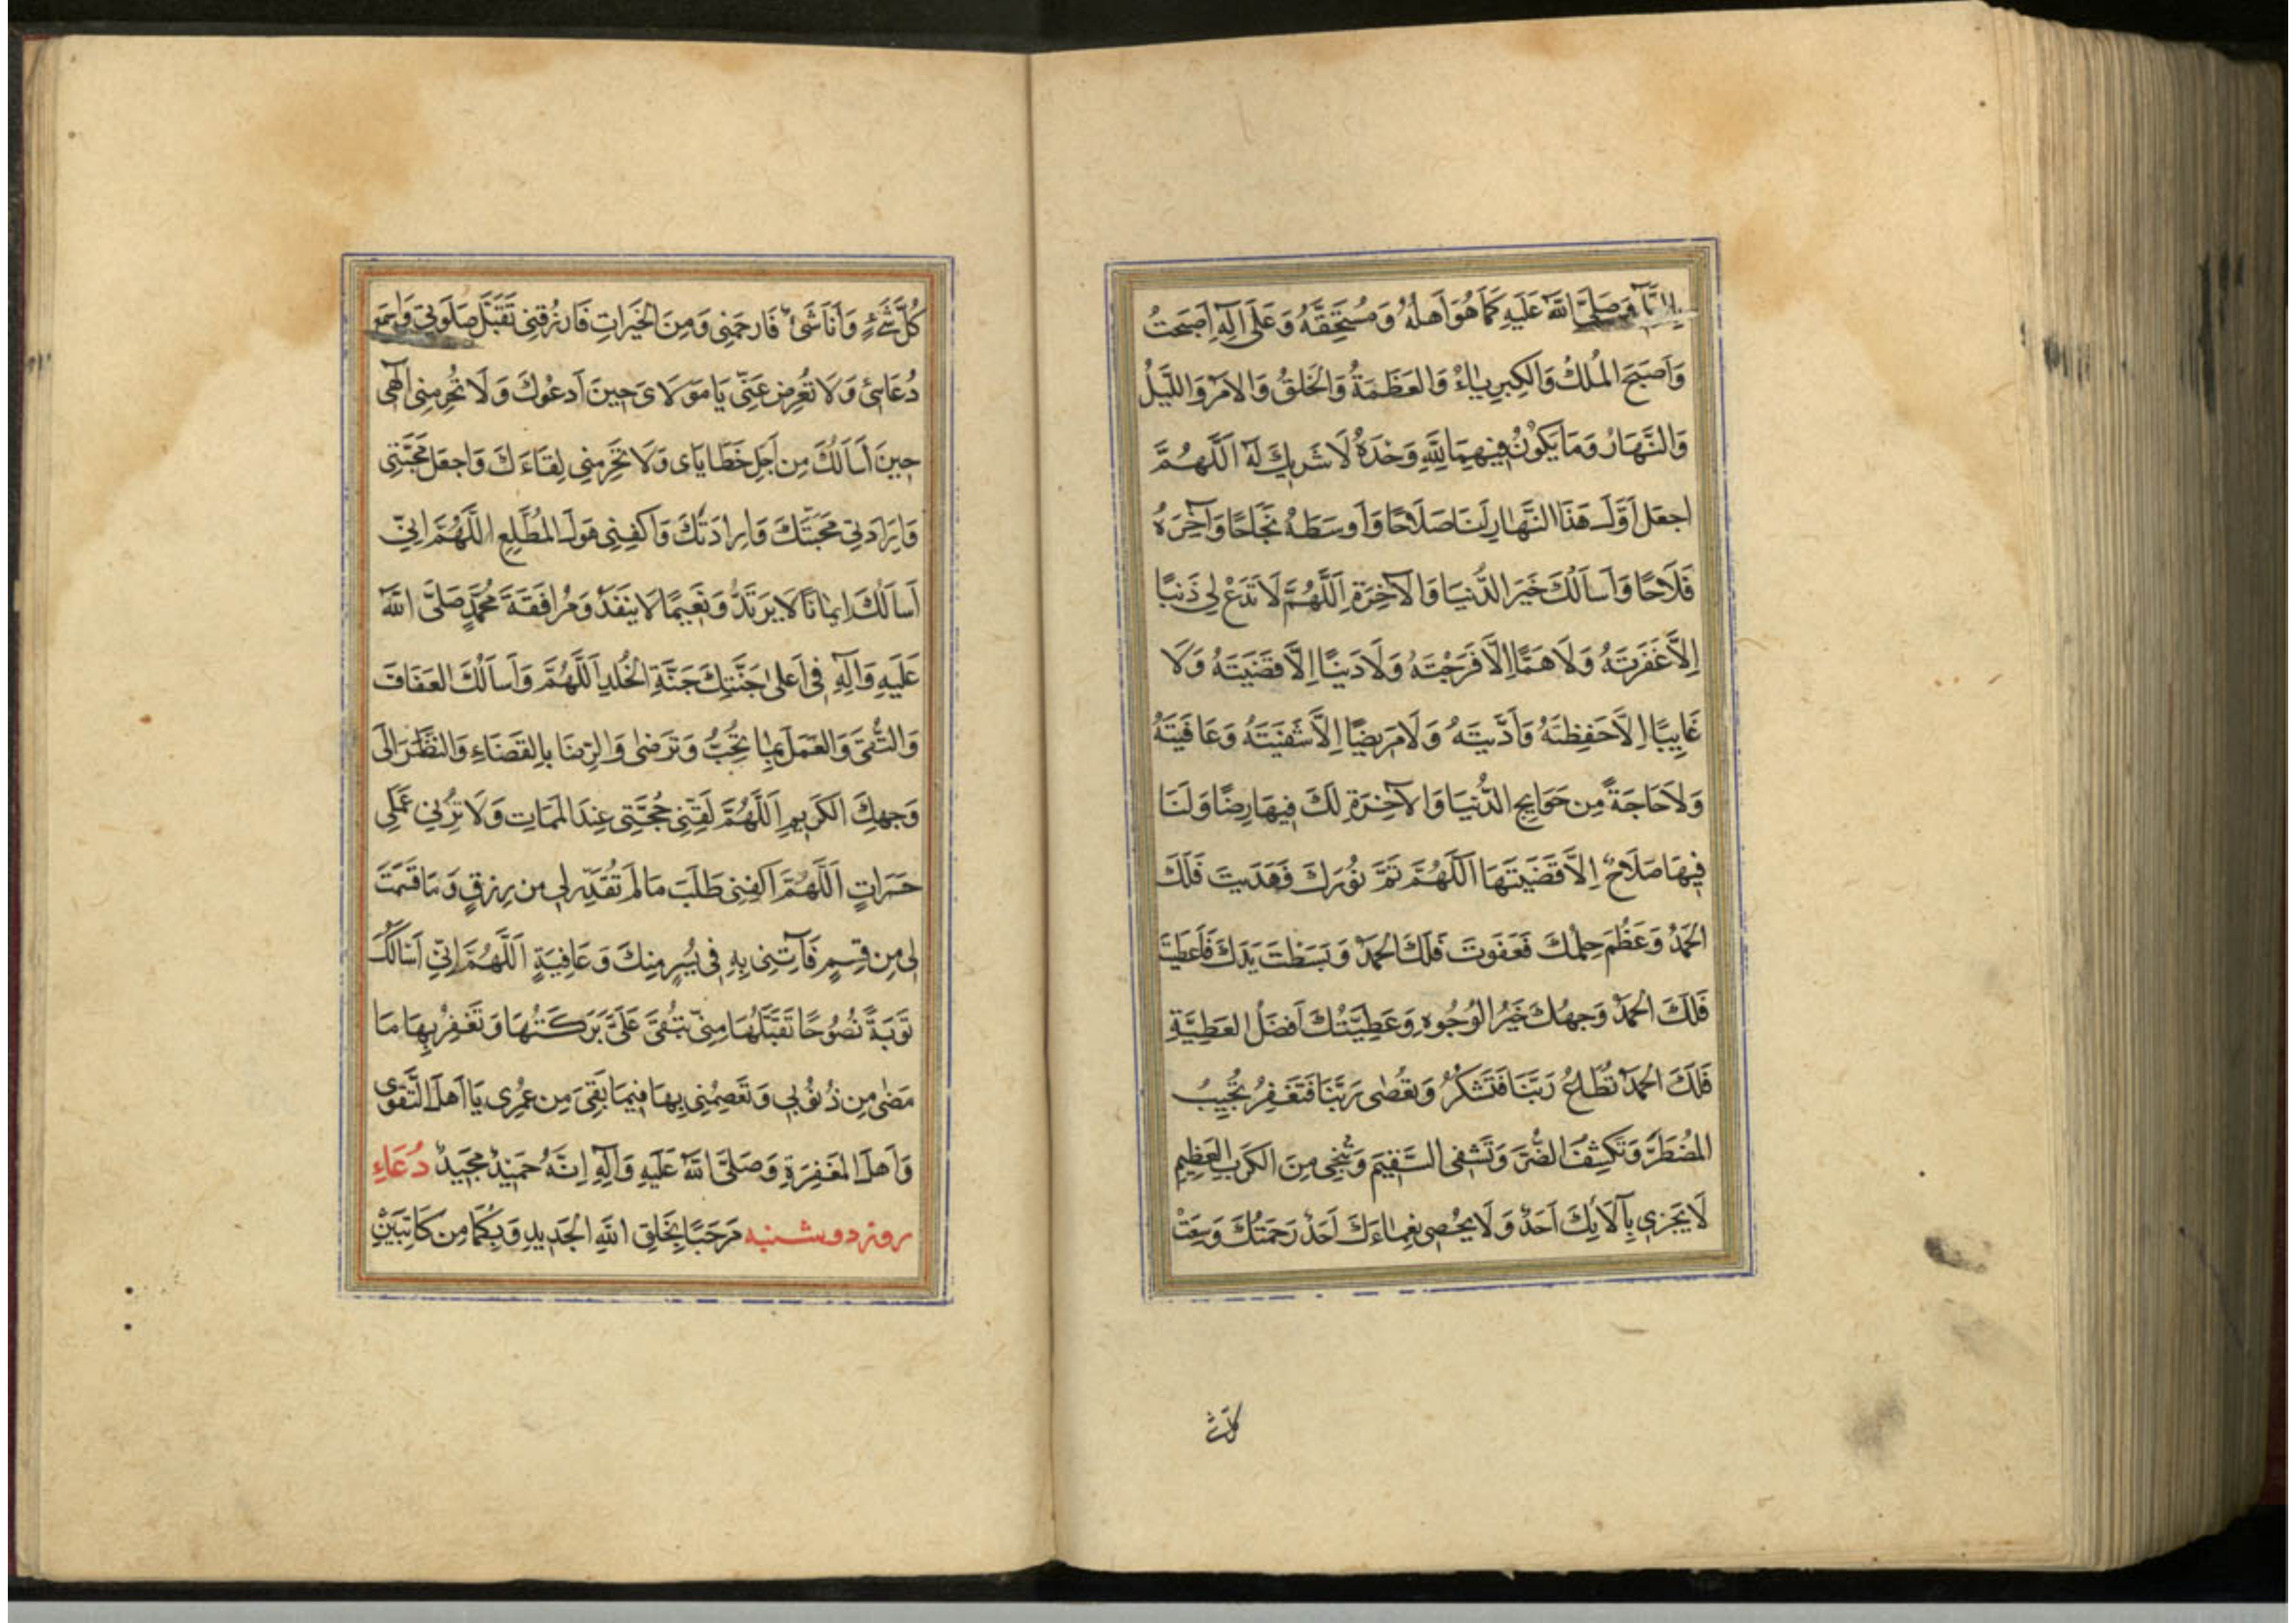 وَصَلَّى اللَّهُ عَلَيْهِ كَمَا هُوَ اَهْلُهُ وَمُسْتَحِقُّهُ وَعَلَى آلِهِ اَصْبَحْتُ
وَاَصْبَحَ الْمُلْكُ وَالْكِبْرِيَاءُ وَالْعَظَمَةُ وَالْخَلْقُ وَالْاَمْرُ وَاللَّيْلُ
وَالنَّهَارُ وَمَا يَكُونُ فِيهِمَا لِلَّهِ وَحْدَهُ لَا شَرِيكَ لَهُ اَللَّهُمَّ
اجْعَلْ اَوَّلَ هَذَا النَّهَارِ لَنَا صَلَاحًا وَاَوْسَطَهُ نَجَاحًا وَآخِرَهُ
فَلَاحًا وَاَسْاَلُكَ خَيْرَ الدُّنْيَا وَالْآخِرَةِ اَللَّهُمَّ لَا تَدَعْ لِي ذَنْبًا
اِلَّا غَفَرْتَهُ وَلَا هَمًّا اِلَّا فَرَجْتَهُ وَلَا دَيْنًا اِلَّا قَضَيْتَهُ وَلَا
غَايِبًا اِلَّا حَفِظْتَهُ وَاَدَّيْتَهُ وَلَا مَرِيضًا اِلَّا شَفَيْتَهُ وَعَافَيْتَهُ
وَلَا حَاجَةً مِنْ حَوَايِجِ الدُّنْيَا وَالْآخِرَةِ لَكَ فِيهَا رِضًا وَلَنَا
فِيهَا صَلَاحٌ اِلَّا قَضَيْتَهَا اَللَّهُمَّ تَمَّ نُورُكَ فَهَدَيْتَ فَلَكَ
الْحَمْدُ وَعَظُمَ حِلْمُكَ فَعَفَوْتَ فَلَكَ الْحَمْدُ وَبَسَطْتَ يَدَكَ فَاَعْطَيْتَ
فَلَكَ الْحَمْدُ وَجْهُكَ خَيْرُ الْوُجُوهِ وَعَطِيَّتُكَ اَفْضَلُ الْعَطِيَّةِ
فَلَكَ الْحَمْدُ تُطَاعُ رَبَّنَا فَتَشْكُرُ وَتُعْصَى رَبَّنَا فَتَغْفِرُ تُجِيبُ
الْمُضْطَرَّ وَتَكْشِفُ الضُّرَّ وَتَشْفِي السَّقِيمَ وَتُنْجِي مِنَ الْكَرْبِ الْعَظِيمِ
لَا يَجْزِي بِآلَائِكَ اَحَدٌ وَلَا يُحْصِي نِعْمَاءَكَ اَحَدٌ رَحْمَتُكَ وَسِعَتْ
كُلَّ شَيْءٍ وَاَنَا شَيْءٌ فَارْحَمْنِي وَمِنَ الْخَيْرَاتِ فَارْزُقْنِي تَقَبَّلْ صَلَوتِي وَاسْمَعْ
دُعَائِي وَلَا تُعْرِضْ عَنِّي يَا مَوْلَايَ حِينَ اَدْعُوكَ وَلَا تَحْرِمْنِي اِلَهِي
حِينَ اَسْاَلُكَ مِنْ اَجْلِ خَطَايَايَ وَلَا تَحْرِمْنِي لِقَاءَكَ وَاجْعَلْ مَحَبَّتِي
وَاِرَادَتِي مَحَبَّتَكَ وَاِرَادَتَكَ وَاكْفِنِي هَوْلَ الْمُطَّلَعِ اللَّهُمَّ اِنِّي
اَسْاَلُكَ اِيمَانًا لَا يَرْتَدُّ وَنَعِيمًا لَا يَنْفَدُ وَمُرَافَقَةَ مُحَمَّدٍ صَلَّى اللَّهُ
عَلَيْهِ وَآلِهِ فِي اَعْلَى جَنَّتِكَ جَنَّةِ الْخُلْدِ اَللَّهُمَّ وَاَسْاَلُكَ الْعَفَافَ
وَالتُّقَى وَالْعَمَلَ بِمَا تُحِبُّ وَتَرْضَى وَالرِّضَا بِالْقَضَاءِ وَالنَّظَرَ اِلَى
وَجْهِكَ الْكَرِيمِ اَللَّهُمَّ لَقِّنِّي حُجَّتِي عِنْدَ الْمَمَاتِ وَلَا تُرِنِي عَمَلِي
حَسَرَاتٍ اَللَّهُمَّ اكْفِنِي طَلَبَ مَا لَمْ تُقَدِّرْ لِي مِنْ رِزْقٍ وَمَا قَسَمْتَ
لِي مِنْ قِسْمٍ فَآتِنِي بِهِ فِي يُسْرٍ مِنْكَ وَعَافِيَةٍ اَللَّهُمَّ اِنِّي اَسْاَلُكَ
تَوْبَةً نَصُوحًا تَقَبَّلُهَا مِنِّي تَبْقَى عَلَيَّ بَرَكَتُهَا وَتَغْفِرُ بِهَا مَا
مَضَى مِنْ ذُنُوبِي وَتَعْصِمُنِي بِهَا فِيمَا بَقِيَ مِنْ عُمْرِي يَا اَهْلَ التَّقْوَى
وَاَهْلَ الْمَغْفِرَةِ وَصَلَّى اللَّهُ عَلَيْهِ وَآلِهِ اِنَّهُ حَمِيدٌ مَجِيدٌ دُعَاءِ
روز دوشنبه مَرْحَبًا بِخَلْقِ اللَّهِ الْجَدِيدِ وَبِكُمَا مِنْ كَاتِبَيْنِ